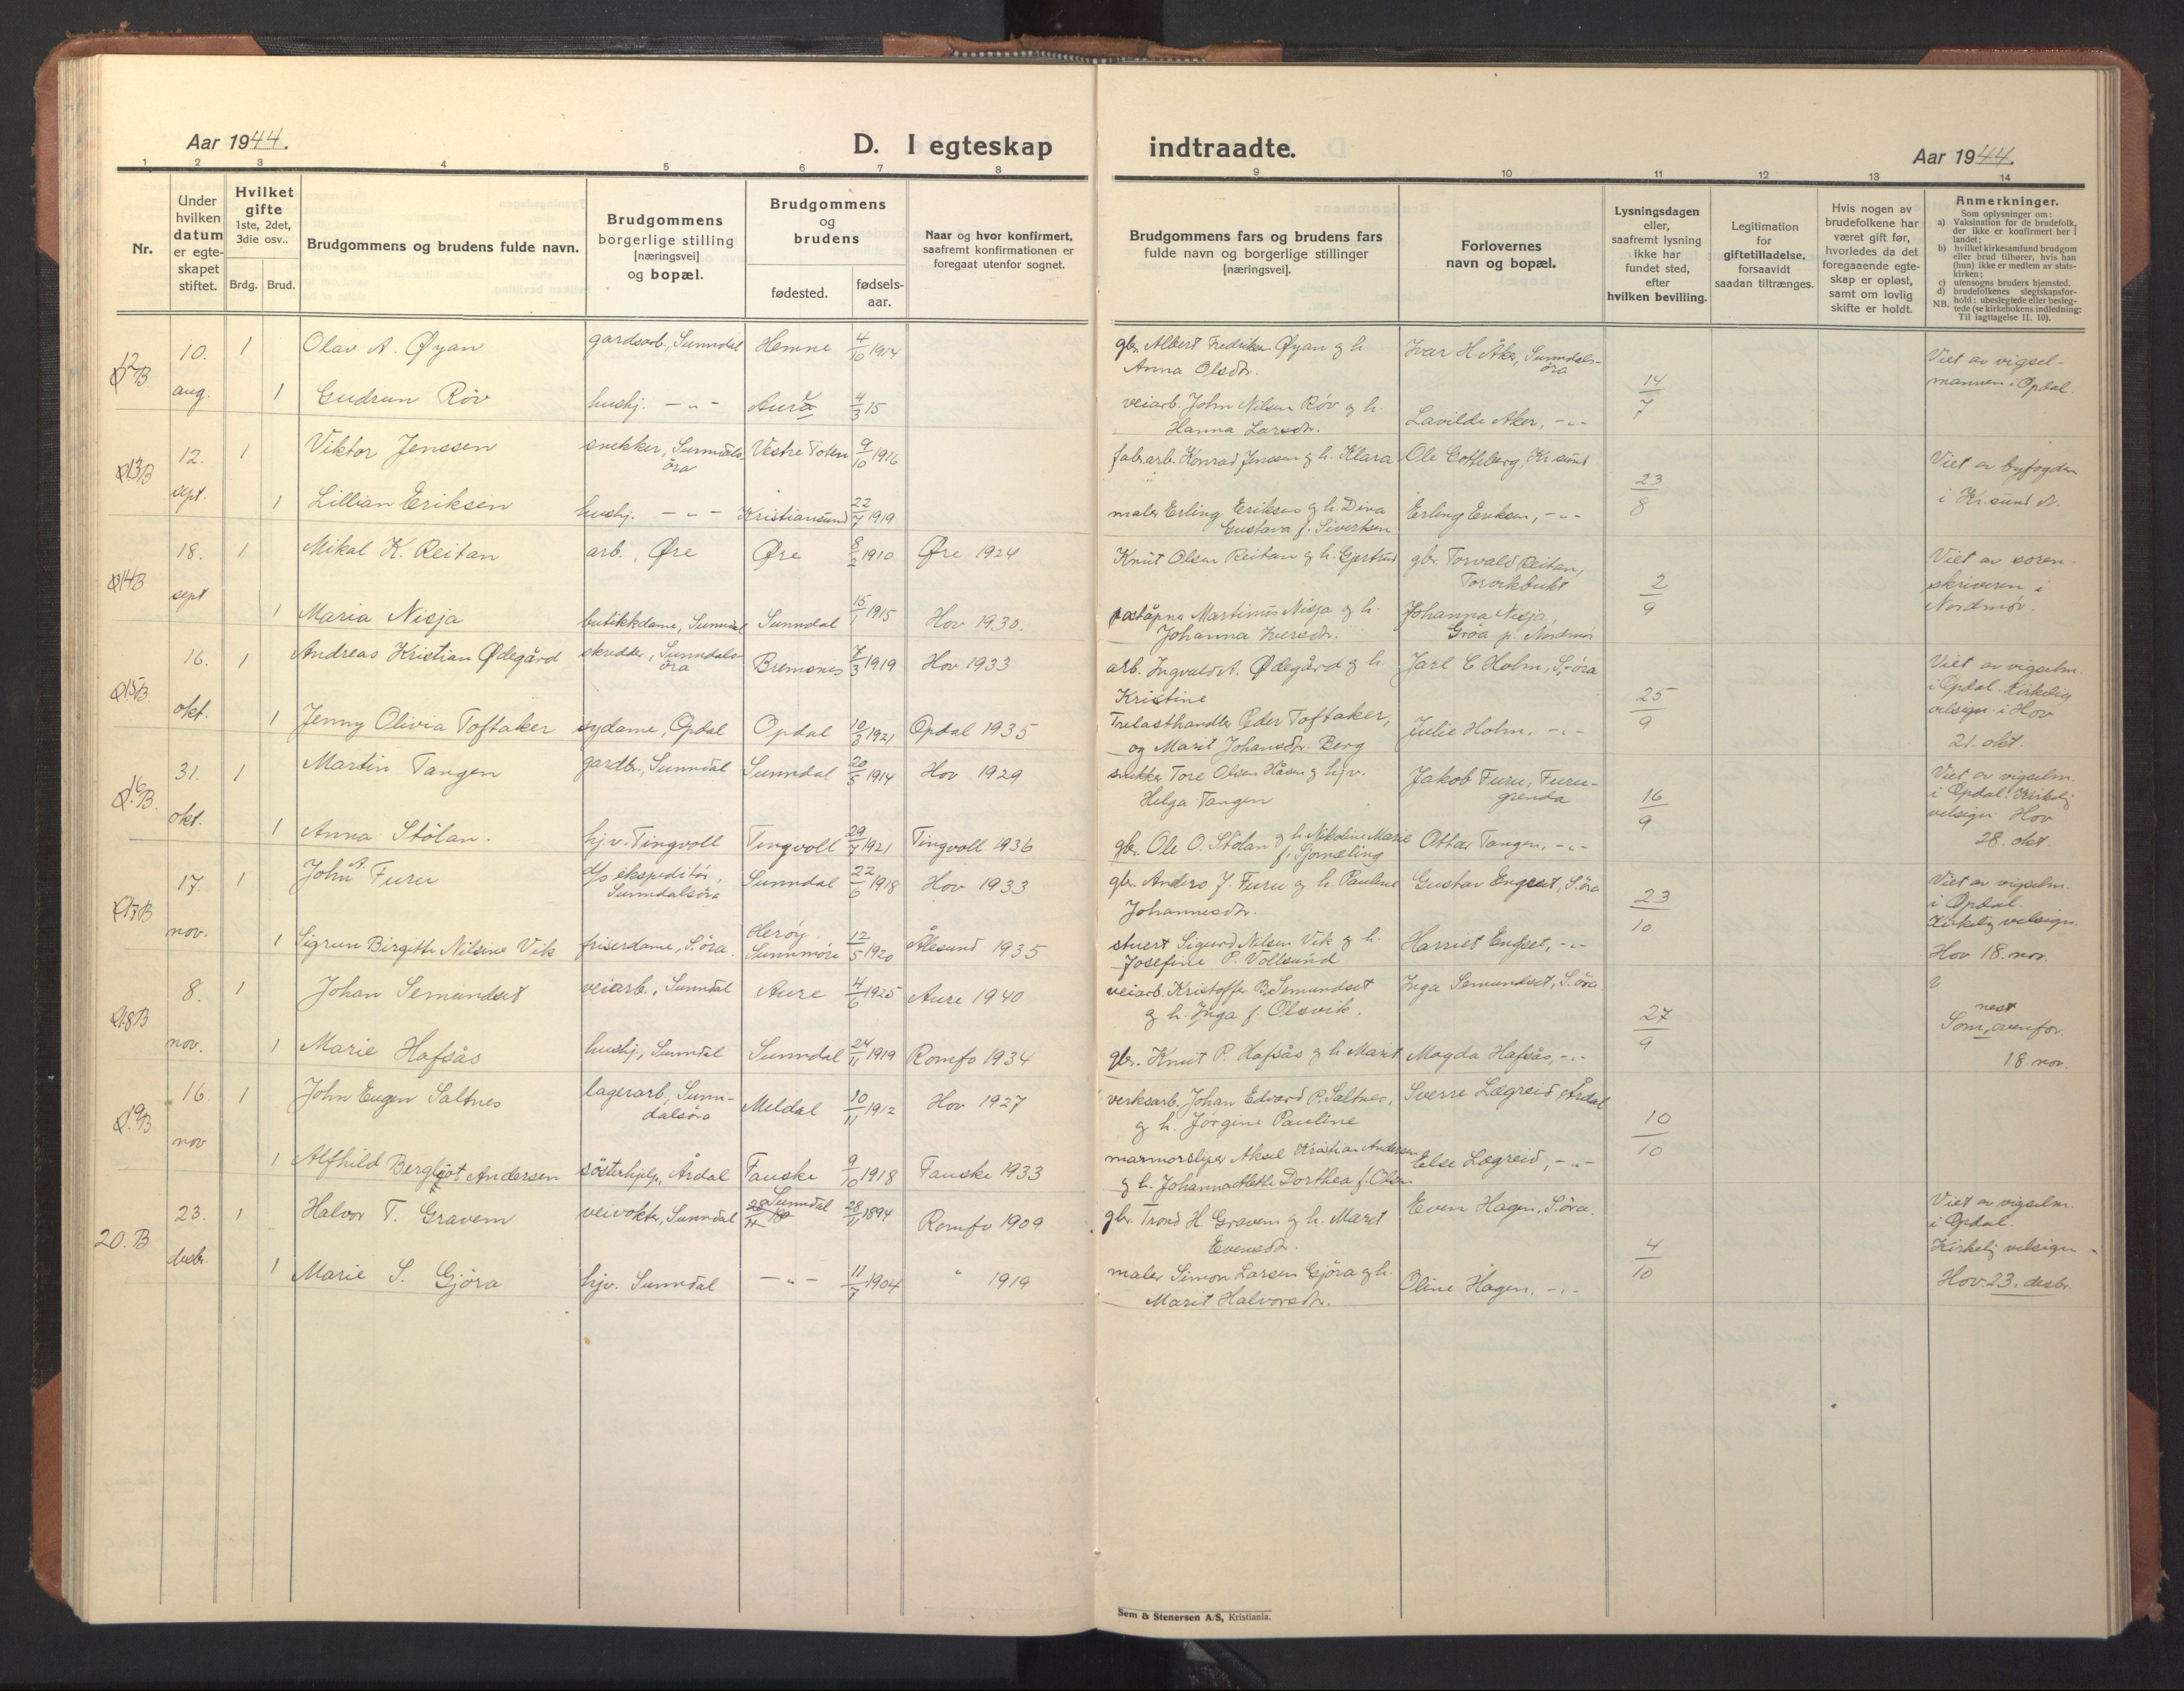 Aar 1944. D. I egteskap indtraadte. Aar 1944.
1 2 3 4 5 6 7 8 9 10 11 12 13 14
Nr.
Under hvilken datum er egte-skapet stiftet.
Hvilket gifte 1ste, 2det, 3die osv..
Brdg. Brud.
Brudgommens og brudens fulde navn.
Brudgommens borgerlige stilling [næringsvei] og bopæl.
Brudgommens og brudens
fødested. fødsels-aar.
Naar og hvor konfirmert, saafremt konfirmationen er foregaat utenfor sognet.
Brudgommens fars og brudens fars fulde navn og borgerlige stillinger [næringsvei].
Forlovernes navn og bopæl.
Lysningsdagen eller, saafremt lysning ikke har fundet sted, efter hvilken bevilling.
Legitimation for giftetilladelse, forsaavidt saadan tiltrænges.
Hvis nogen av brudefolkene har været gift før, hvorledes da det foregaaende egte-skap er opløst, samt om lovlig skifte er holdt.
Anmerkninger.
Som oplysninger om:
a) Vaksination for de brudefolk, der ikke er konfirmert her i landet;
b) hvilket kirkesamfund brudgom eller brud tilhører, hvis han (hun) ikke er medlem av stats-kirken;
c) utensogns bruders hjemsted.
d) brudefolkenes slegtskapsfor-hold: ubeslegtede eller besleg-tede (se kirkebokens indledning:
NB. Til iagttagelse II. 10).
12B 10. aug. 1 Olav A. Øyan gardsarb., Sunndal Hemne 4/10 1914 gbr. Albert Fredriksen Øyan g h. Anna Olsdtr. Ivar H. Åker, Sunndals-öra 14/7 Viet av vigsel-mannen i Opdal.
1 Gudrun Röv hushj. -"- Aure 4/3 15 veiarb. John Nilsen Röv g h. Hanna Larsdtr. Lavilde Aker, -"-
13B 12. sept. 1 Viktor Jenssen snekker, Sunndals-öra Vestre Toten 9/10 1916 fab.arb. Konrad Jenssen g h. Klara Ole Gotteberg, Kr.sund 23/8 Viet av byfogden i Kr.sund N.
1 Lillian Eriksen hushj. -"- Kristiansund 22/7 1919 maler Erling Eriksen g h. Dina Gustava f. Sivertsen Erling Eriksen, -"-
14B 18. sept 1 Mikal K. Reitan arb., Øre Øre 8/2 1910 Øre 1924 Knut Olsen Reitan g h. Gjertrud gbr. Torvald Reitan, Torvikbukt 2/9 Viet av soren-skriveren i Nordmør.
1 Maria Nisja butikkdame, Sunndal Sunndal 15/1 1915 Hov 1930. poståpner Martinus Nisja g h. Johanna Iversdtr. Johanna Nisja, Gröa p. Nordmör
15B 16. okt. 1 Andreas Kristian Ødegård skredder, Sunndals-öra Bremsnes 7/3 1919 Hov 1933 arb. Ingvald A. Ødegård g h. Kristine Jarl C Holm, S.öra 25/9 Viet av vigselm. i Opdal. Kirkelig velsign. i Hov 21. okt.
1 Jenny Olivia Toftaker sydame, Opdal Opdal 10/3 1921 Opdal 1935 Trelasthandler Peder Toftaker, og Marit Johansdtr. Berg Julie Holm, -"-
16B. 31. okt. 1 Martin Tangen gardbr., Sunndal Sunndal 20/5 1914 Hov 1929 snekker Tore Olsen Håsen g hj.v. Helga Tangen Jakob Furu, Furu-grenda 16/9 Viet av vigselm. i Opdal. Kirkelig velsign. Hov 28. okt.
1 Anna Stölan. hj.v. Tingvoll Tingvoll 29/7 1921 Tingvoll 1936 gbr. Ole O. Stölan g h. Nikoline Marie f. Gjemeling Ottar Tangen, -"-
17B 17. nov. 1 John A. Furu d/s ekspeditör, Sunndalsöra Sunndal 22/6 1918 Hov 1933 gbr. Anders J. Furu g h. Pauline Johannesdtr. Gustav Engset, S.öra 23/10 Viet av vigselm. i Opdal. Kirkelig velsign. Hov 18. nov.
1 Sigrun Birgitte Nilsine Vik friserdame, S.öra. Heröy Sunnmöre 12/5 1920 Ålesund 1935 stuert Sigurd Nilsen Vik g h. Josefine P. Vollsund Harriet Engset, -"-
18B 8. nov. 1 Johan Semundset veiarb., Sunndal Aure 4/6 1925 Aure 1940 veiarb. Kristoffer B. Semundset g h. Inga f. Olsvik. Inga Semundset, S.öra 27/9 Som nest ovenfor. 18 nov.
1 Marie Hafsås hushj., Sunndal Sunndal 24/11 1919 Romfo 1934 gbr. Knut P. Hafsås g h. Marit Magda Hafsås, -"-
19B 16. nov 1 John Eugen Saltnes lagerarb., Sunn-dalsöra Meldal 10/11 1912 Hov 1927 verksarb. Johan Edvard P. Saltnes, g h. Jörgine Pauline Sverre Lægreid, Årdal 10/10
1 Alfhild Bergljot Andersen sösterhjelp, Årdal Fauske 9/10 1918 Fauske 1933 marmorsliper Aksel Kristian Andersen g h. Johanna Alette Dorthea f. Olsen Else Lægreid, -"-
20.B 23. desbr. 1 Halvor T. Gravem veivokter, Sunndal Sunndal 28/11 1894 Romfo 1909 gbr. Trond H. Gravem g h. Marit Evensdtr. Even Hagen, S.öra. 4/10 Viet av vigselm. i Opdal. Kirkelig velsign. Hov 23. desbr.
1 Marie S. Gjöra hjv. Sunndal -"- 11/7 1904 " 1919 maler Simon Larsen Gjöra g h. Marit Halvorsdtr. Oline Hagen, -"-
Sem & Stenersen A/S, Kristiania.